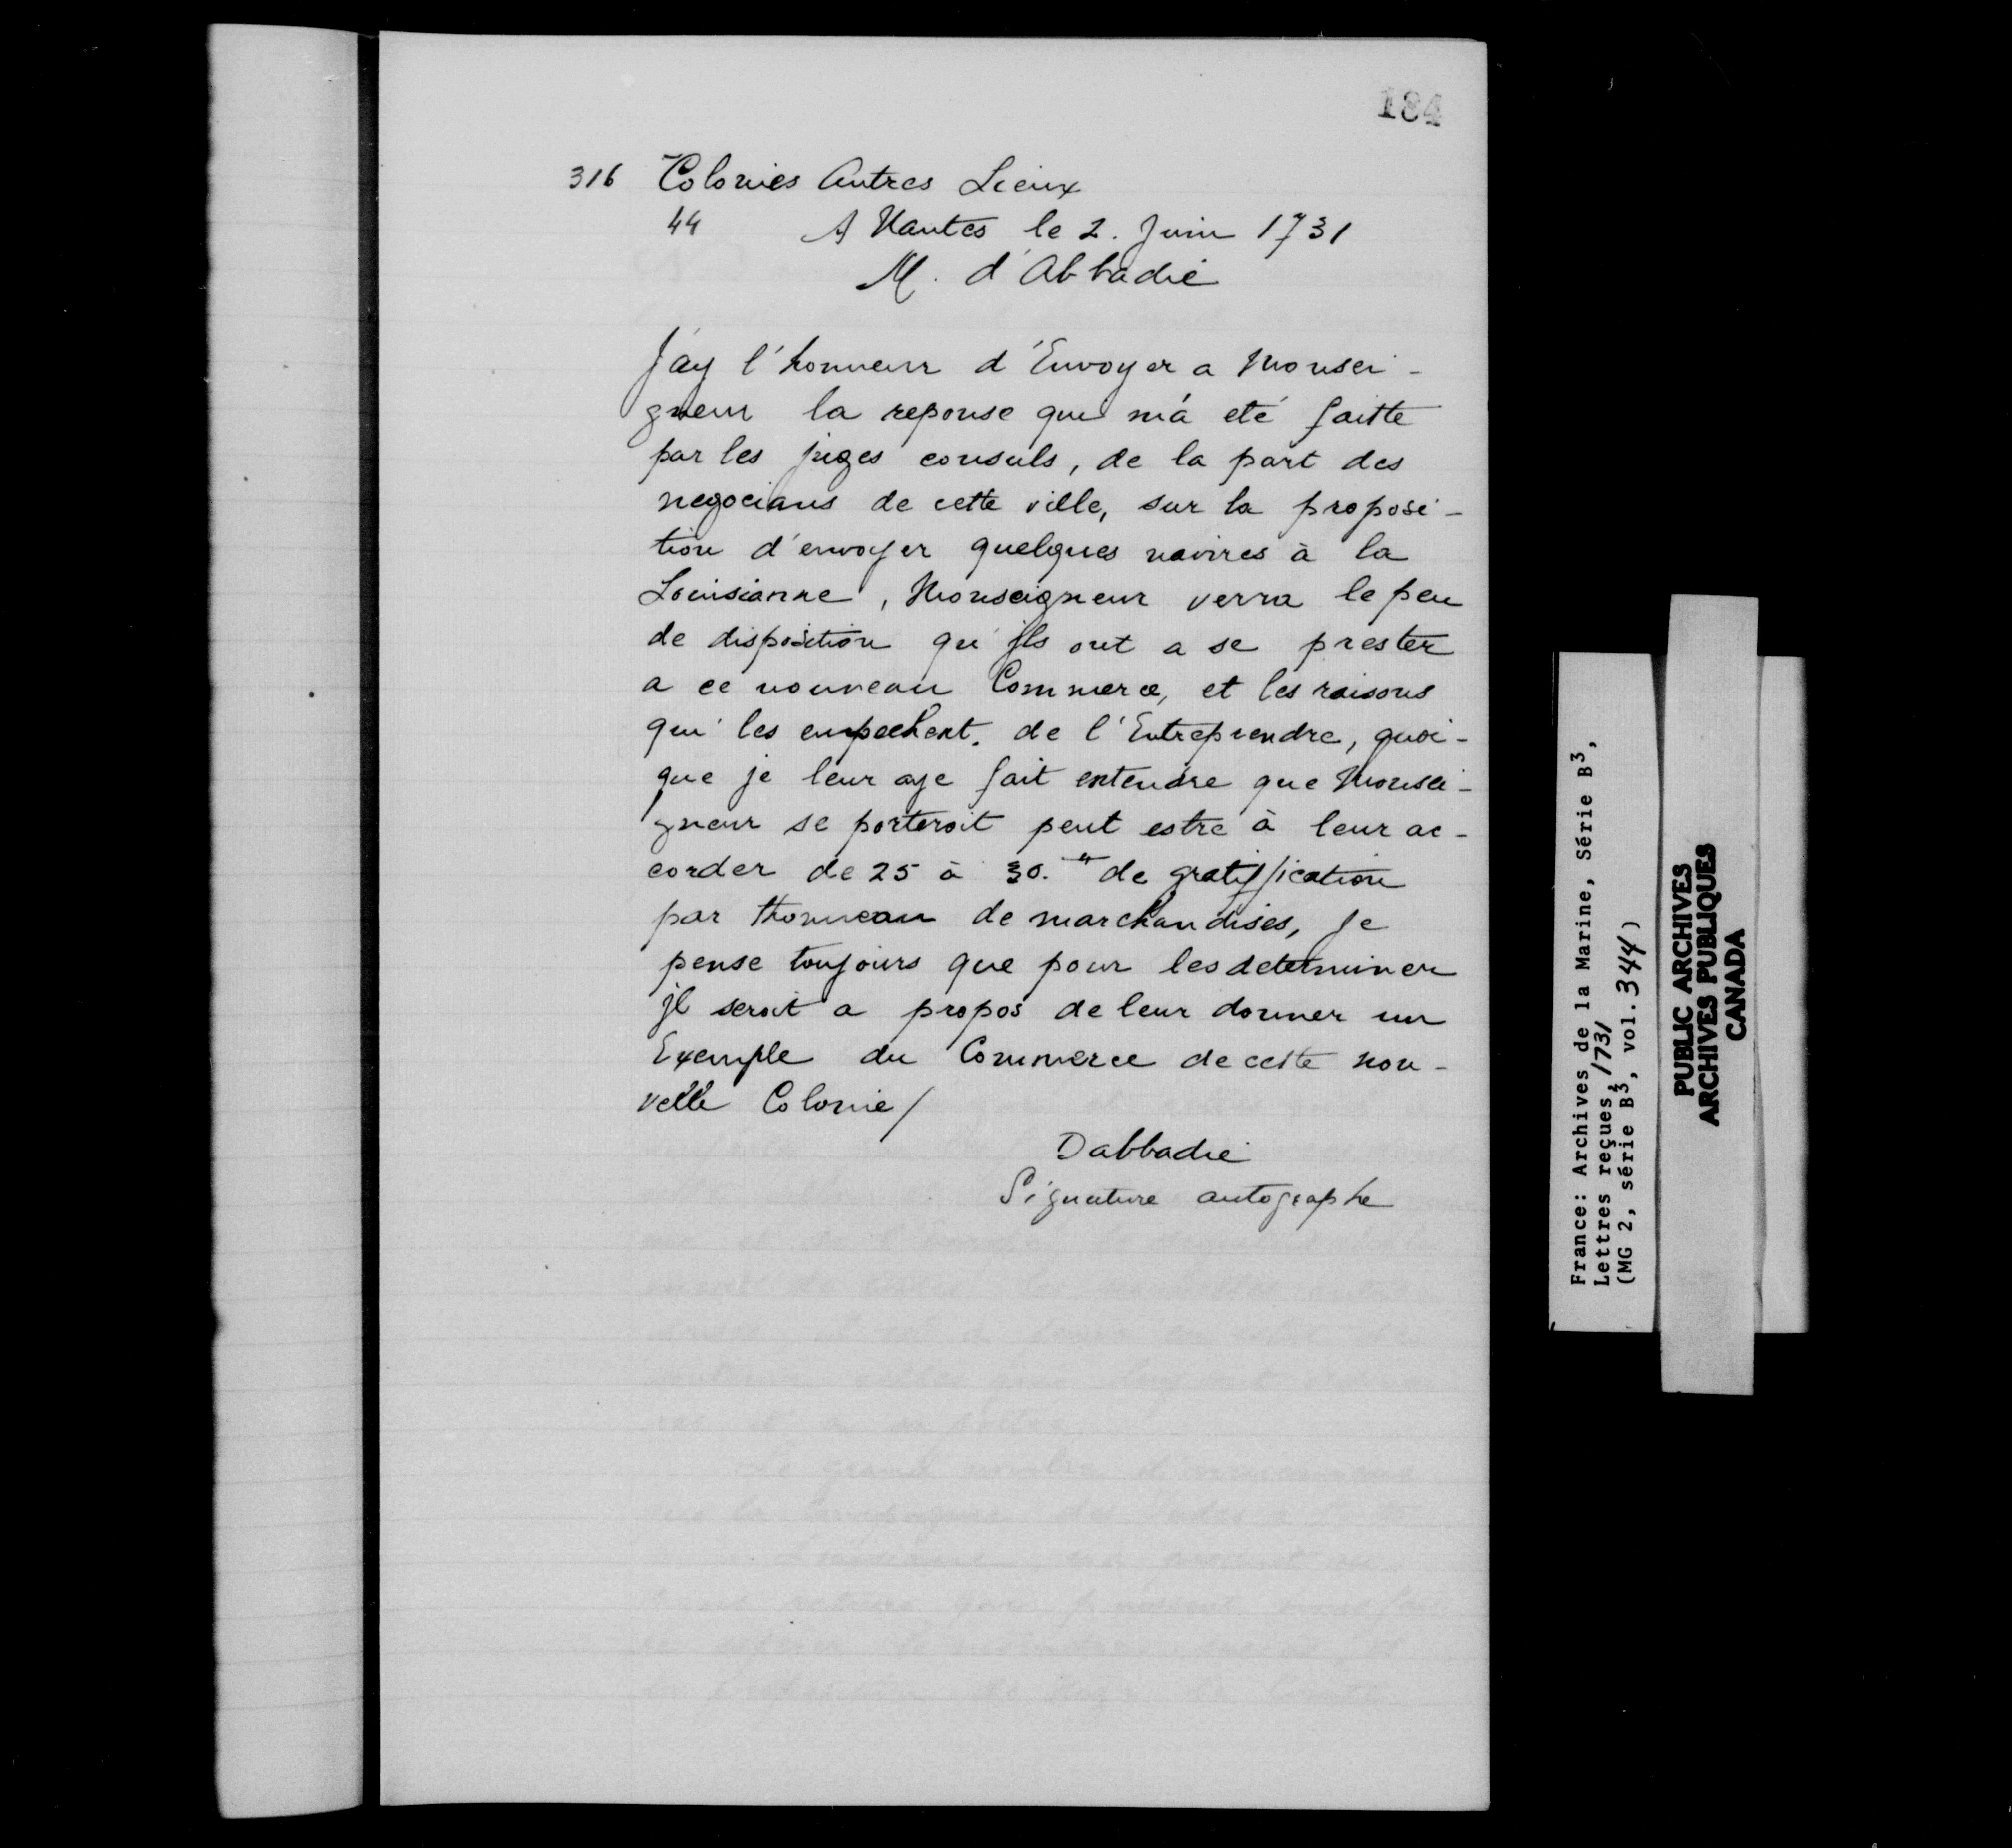 184
316 Colonies Autres Lieux
44 A Nantes le 2. Juin 1731
M. d'Abbadie
J'ay l'honneur d'Envoyer a Monsei-
gneur la reponse que m'a eté faitte
par les juges consuls, de la part des
negocians de cette ville, sur la proposi-
tion d'envoyer quelques navires à la
Louisianne, Monseigneur verra le peu
de disposition qu'ils ont a se prester
a ce nouveau Commerce, et les raisons
qui les empechent. de l'Entreprendre, quoi-
que je leur aye fait entendre que Monsei-
gneur se porteroit peut estre à leur ac-
corder de 25 à 30.ᵗᵗ de gratiffication
par thonneau de marchandises, Je
pense toujours que pour les determiner
jl seroit a propos de leur donner un
Exemple du Commerce de cette nou-
velle Colonie/
Dabbadie
Signature autographe
France: Archives de la Marine, Série B³,
Lettres reçues, 1731
(MG 2, série B³, vol. 344)
PUBLIC ARCHIVES
ARCHIVES PUBLIQUES
CANADA